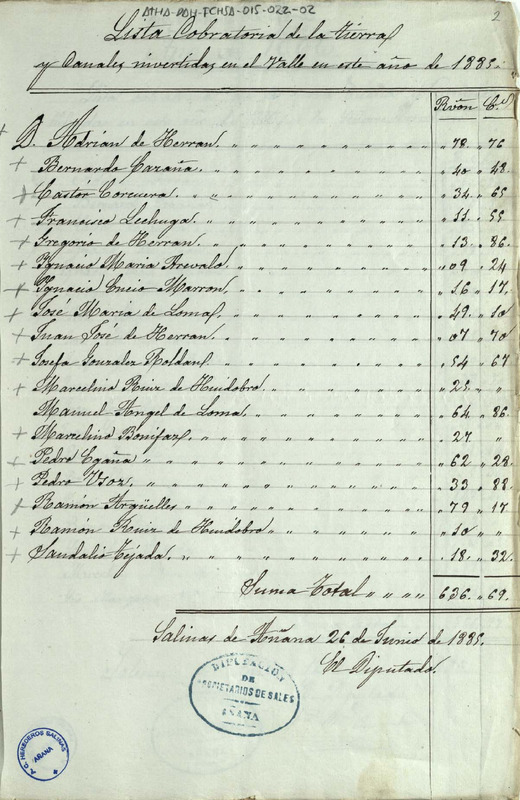 ATHA-DAH-FCHSA-015-022-02
2
Lista Cobratoria de la tierra
y Canales invertidas en el Valle en este año de 1885.
Rvón C.s
D. Adrián de Herran. 78. 76
Bernardo Cazaña. 40. 48.
Castór Corcuera. 34. 65
Francisco Lechuga. 11. 55
Gregorio de Herran. 13. 86.
Ygnacio Maria Arevalo. 09. 24
Ygnacio Encio Marron. 16. 17.
José Maria de Loma. 49. 10
Juan José de Herran. 07. 70
Josefa Gonzalez Roldan. 54. 67
Marcelino Ruiz de Huidobro. 25. "
Manuel Angel de Loma. 64. 86.
Marcelino Bonifaz. 27. "
Pedro Egaña 62. 28.
Pedro Usoz. 33. 88
Ramón Argüelles 79. 17
Ramón Ruiz de Huidobro 10 "
Sandalio Tejada. 18. 32.
Suma Total 636. 69.
Salinas de Añana 26 de Junio de 1885.
El Diputado.
DIPUTACIÓN
DE
PROPIETARIOS DE SALES
AÑANA
A.C. HEREDEROS SALINAS
AÑANA